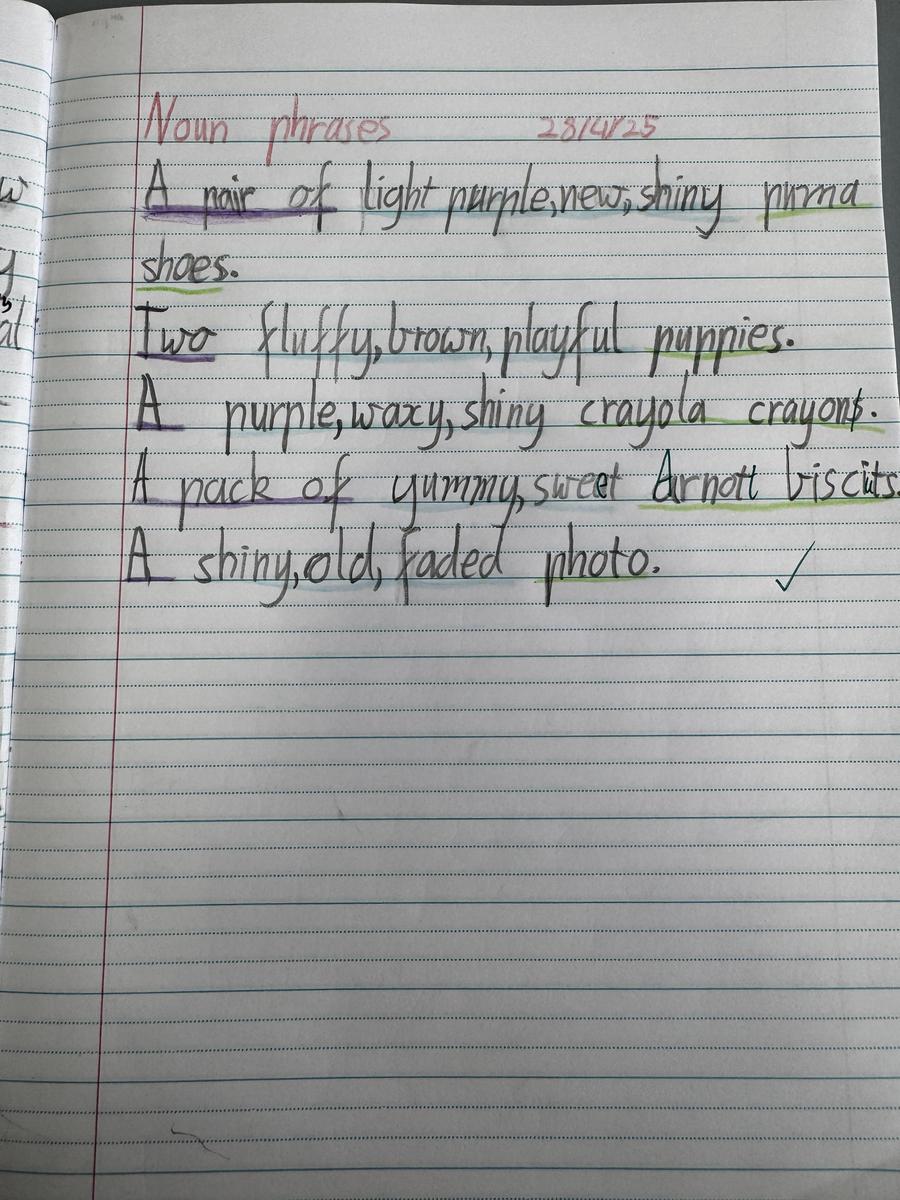 Noun phrases 28/4/25
A pair of light purple, new, shiny puma
shoes.
Two fluffy, brown, playful puppies.
A purple, waxy, shiny crayola crayon.
A pack of yummy, sweet Arnott biscuits.
A shiny, old, faded photo.